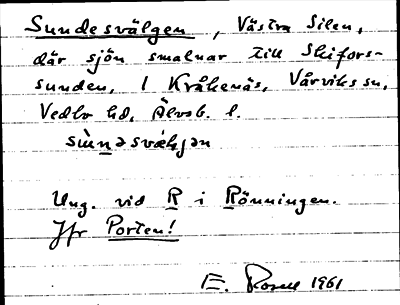 Sundesvälgen, Västra Silen,
där sjön smalnar till Skifors-
sunden, i Kråkenäs, Vårviks sn,
Vedbo hd, Älvsb. l.
Ung. vid R i Rönningen.
Jfr Porten!
E. 1961